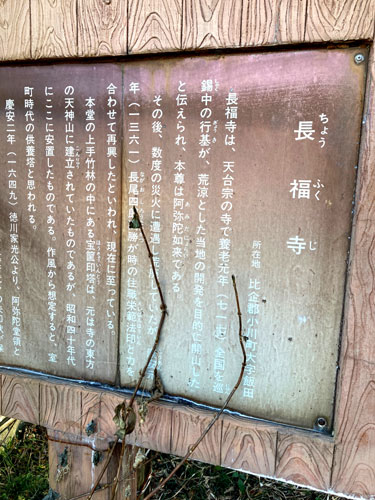 長福寺
ちょう ふく じ
所在地 比企郡小川町大字飯田
長福寺は、天台宗の寺で養老元年(七一七)全国巡
錫中の行基が、荒涼とした当地の開発を目的に開山した
と伝えられ、本尊は阿弥陀如来である
その後、数度の災火に遭遇し
年(一三六一)長尾四郎 勝が時の住職栄範法印と力を
合わせて再興したといわれ、現在に至っている。
本堂の上手竹林の中にある宝篋印塔は、元は寺の東方
の天神山に建立されていたものであるが、昭和四十年代
にここに安置したものである。作風から想定すると、室
町時代の供養塔と思われる。
慶安二年(一六四九)徳川家光公より、阿弥陀堂領と